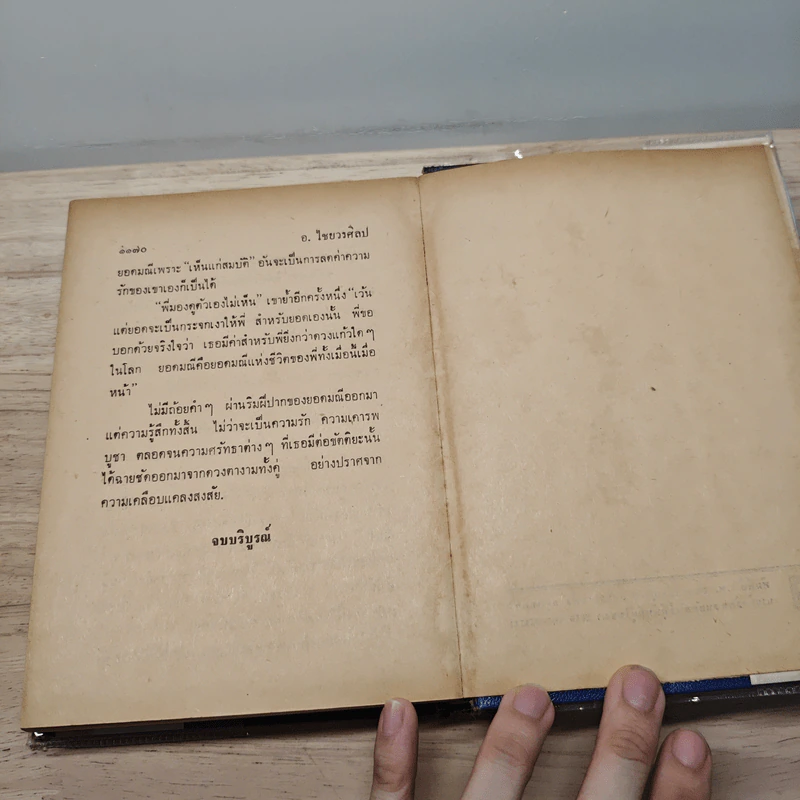 ๑๑๗๐
อ. ไชยวรศิลป
ยอดมณีเพราะ “เห็นแก่สมบัติ” อันจะเป็นการลดค่าความ
รักของเขาเองก็เป็นได้
“พี่มองดูตัวเองไม่เห็น” เขาย้ำอีกครั้งหนึ่ง “เว้น
แต่ยอดจะเป็นกระจกเงาให้พี่ สำหรับยอดเองนั้น พี่ขอ
บอกด้วยจริงใจว่า เธอมีค่าสำหรับพี่ยิ่งกว่าดวงแก้วใด ๆ
ในโลก ยอดมณีคือยอดมณีแห่งชีวิตของพี่ทั้งเมื่อนี้เมื่อ
หน้า”
ไม่มีถ้อยคำ ๆ ผ่านริมฝีปากของยอดมณีออกมา
แต่ความรู้สึกทั้งสิ้น ไม่ว่าจะเป็นความรัก ความเคารพ
บูชา ตลอดจนความศรัทธาต่าง ๆ ที่เธอมีต่อขัตติยะนั้น
ได้ฉายชัดออกมาจากดวงตางามทั้งคู่ อย่างปราศจาก
ความเคลือบแคลงสงสัย.
จบบริบูรณ์